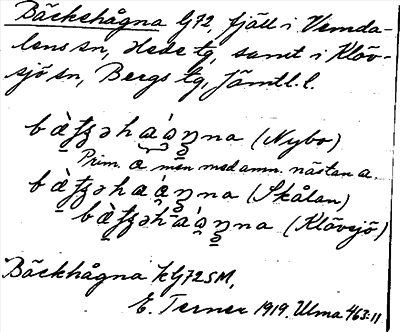 Bäckshågna G72, fjäll i Vemda-
lens sn, Hede tg, samt i Klöv-
sjö sn, Bergs tg, Jämtl.l.
(Nybo)
Prim. men med amn. nästan a.
(Skålan)
(Klövsjö)
Bäckhågna kG72SM,
E. Terner 1919. Ulma 463:11